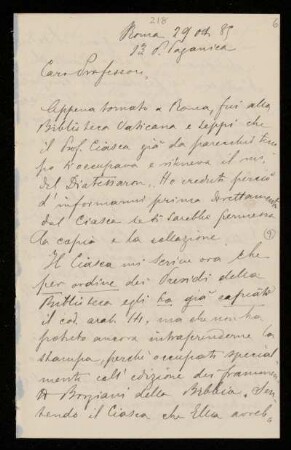 218
6
Roma 29 Ott. 85
12 P. Paganica
Caro Professore,
Appena tornato a Roma, fui alla
Biblioteca Vaticana e seppi che
il Prof. Ciasca già da parecchio tem
po s'occupava e riteneva il ms.
del Diatessaron. Ho creduto perciò
d'informarmi prima direttamente
dal Ciasca se ti sarebbe permessa
la copia e la collazione
Il Ciasca mi scrive ora che
per ordine dei Presidi della
Biblioteca egli ha già copiato
il cod. arab. 14. ma che non ha
potuto ancora intraprenderne la
stampa, perchè occupato special
mente coll'edizione dei frammenti
Borgiani della Bibbia. Sen
tendo il Ciasca che Ella avreb-